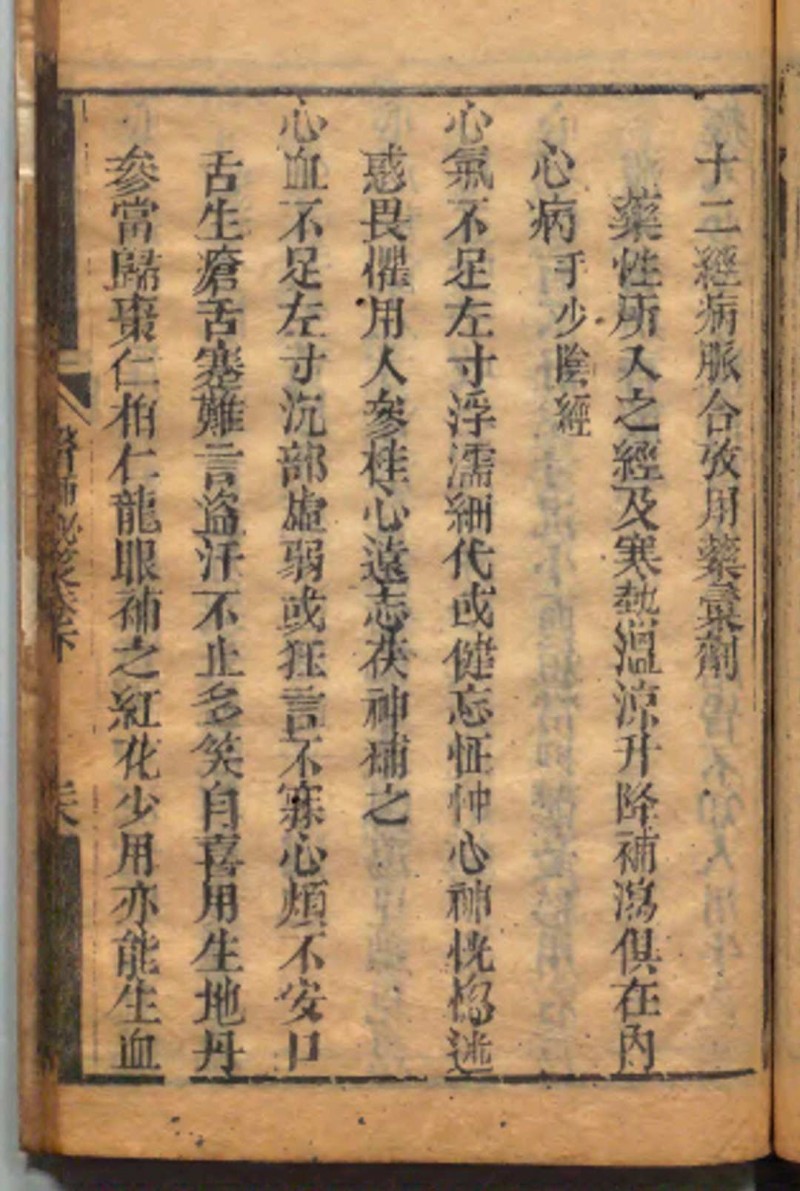 十二經病脈合攷用藥彚劑
藥性所入之經及寒熱溫凉升降補瀉俱在內
心病手少陰經
心氣不足左寸浮濡細代或健忘怔忡心神恍惚迷
惑畏懼用人參桂心遠志茯神補之
心血不足左寸沉部虛弱或狂言不寐心煩不安口
舌生瘡舌蹇難言盜汗不止多笑自喜用生地丹
參當歸棗仁柏仁龍眼補之紅花少用亦能生血
卷下